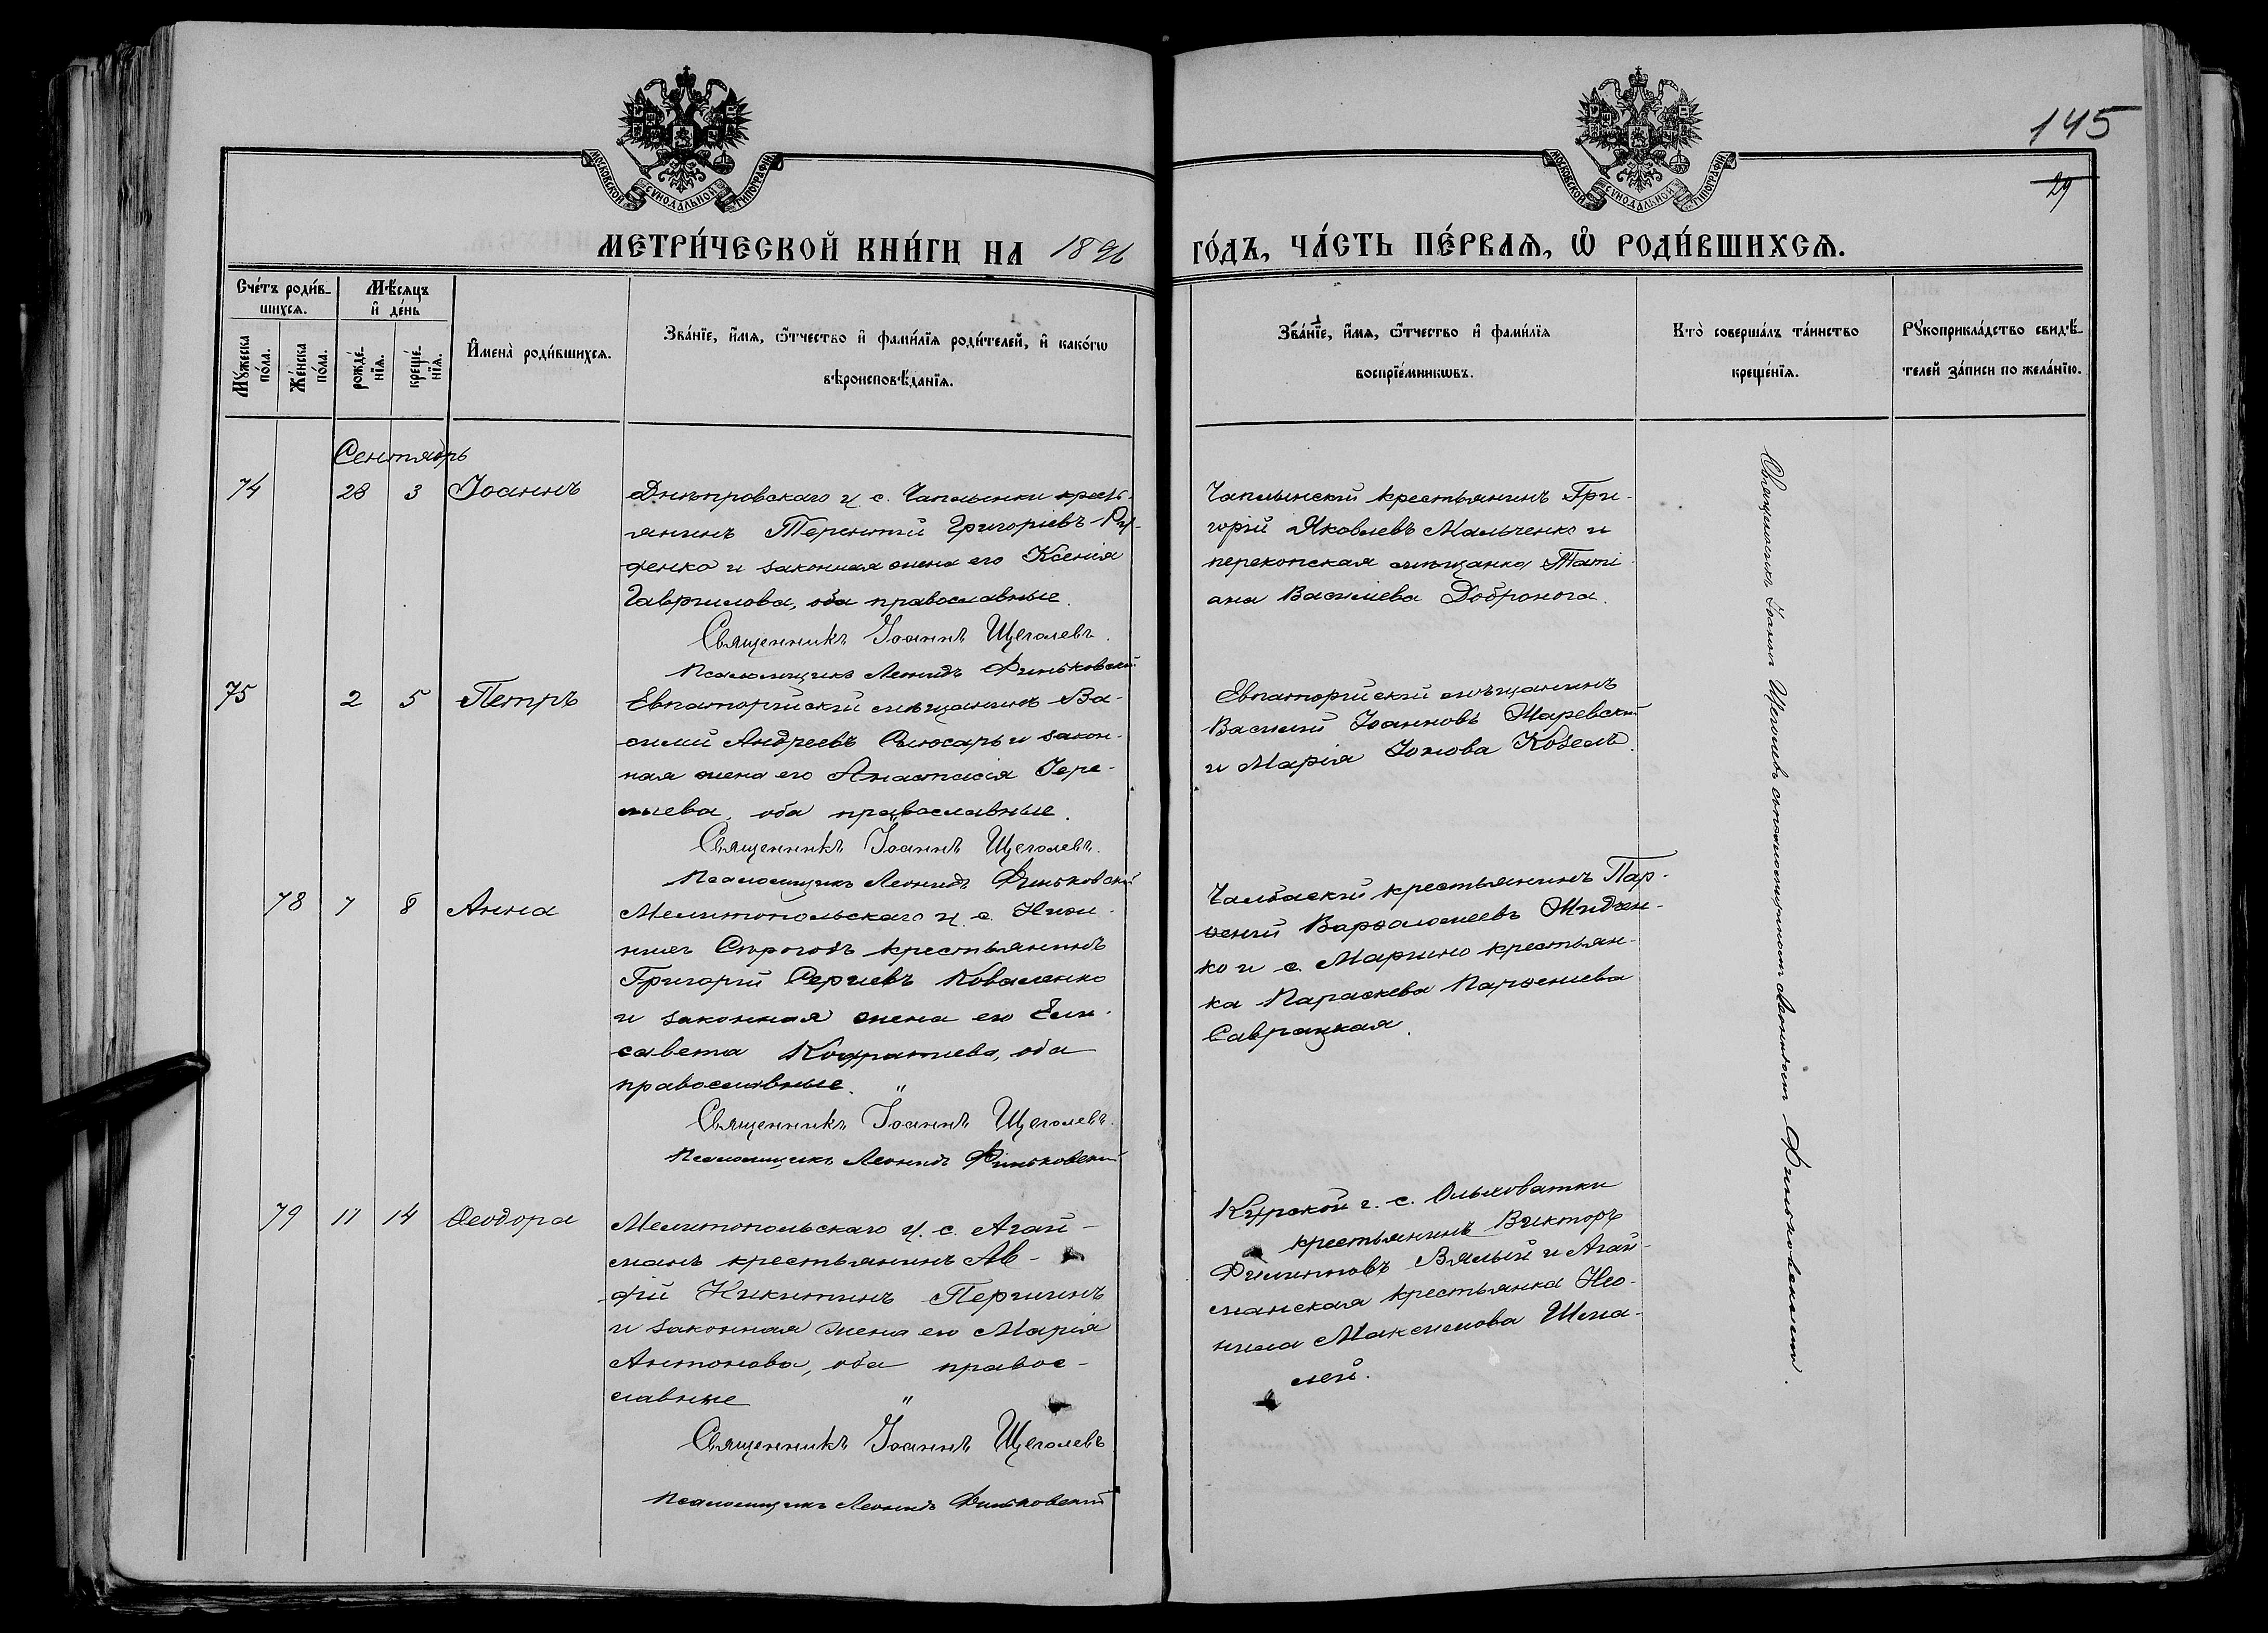 145
29
МОСКОВСКОЙ СѴНОДАЛЬНОЙ ТИПОГРАФІИ
МОСКОВСКОЙ СѴНОДАЛЬНОЙ ТИПОГРАФІИ
МЕТРИ́ЧЕСКОЙ КНИ́ГИ НА 1896
ГО́ДЪ, ЧА́СТЬ ПЕ́РВАѦ, Ѡ҆ РОДИ́ВШИХСѦ.
Сче́тъ роди́в-
шихсѧ.
Мѣ́сѧцъ
и҆ де́нь
Мꙋ́жеска
по́ла.
Же́нска
по́ла.
рожде́-
нїѧ.
креще́-
нїѧ.
И҆мена̀ роди́вшихсѧ.
Зва́нїе, и҆́мѧ, ѻ҆́тчество и҆ фами́лїѧ роди́телей, и҆ како́гѡ
вѣроисповѣ́данїѧ.
Зва́нїе, и҆́мѧ, ѻ҆́тчество и҆ фами́лїѧ
воспрїе́мникѡвъ.
Кто̀ соверша́лъ та́инство
креще́нїѧ.
Рꙋкоприкла́дство свидѣ́-
телей за́писи по жела́нїю.
Сентябрь
74 28 3 Іоаннъ
Днѣпровскаго у. с. Чаплынки кресть-
янинъ Терентій Григоріевъ Ру-
денко и законная жена его Ксенія
Гаврилова, оба православные.
Священникъ Іоаннъ Щеголевъ.
Псаломщикъ Леонидъ Финьковскій
Чаплынскій крестьянинъ Гри-
горій Яковлевъ Мальченко и
перекопская мѣщанка Тати
ана Василиева Добронога.
75 2 5 Петръ
Евпаторійскій мѣщанинъ Ва-
силий Андреевъ Слюсарь и закон-
ная жена его Анастасія Іере-
миева, оба православные.
Священникъ Іоаннъ Щеголевъ.
Псаломщикъ Леонидъ Финьковскій
Евпаторійскій мѣщанинъ
Василий Іоанновъ Шаревскій
и Марія Іонова Козель.
78 7 8 Анна
Мелитопольскаго у. с. Ниж-
нихъ Сѣрогозъ крестьянинъ
Григорій Сергиевъ Коваленко
и законная жена его Ели-
савета Кодратиева, оба
православные.
Священникъ Іоаннъ Щеголевъ.
Псаломщикъ Леонидъ Финьковскій
Чалбаскій крестьянинъ Пар-
ѳеній Варѳаломеевъ Жидчен-
ко и с. Марьино крестьян-
ка Параскева Парѳениева
Саврацкая.
79 11 14 Ѳеодора
Мелитопольскаго у. с. Агай-
манъ крестьянинъ Ав-
дій Никитинъ Першинъ
и законная жена его Марія
Антонова, оба правос-
лавные
Священникъ Іоаннъ Щеголевъ
Псаломщикъ Леонидъ Финьковскій
Курской г. с. Ольховатки
крестьянинъ Викторъ
Филипповъ Вялый и Агай-
манская крестьянка Нео-
нила Максимова Шма-
лей.
Священникъ Іоаннъ Щеголевъ съ псаломщикомъ Леонидомъ Финьковскимъ.